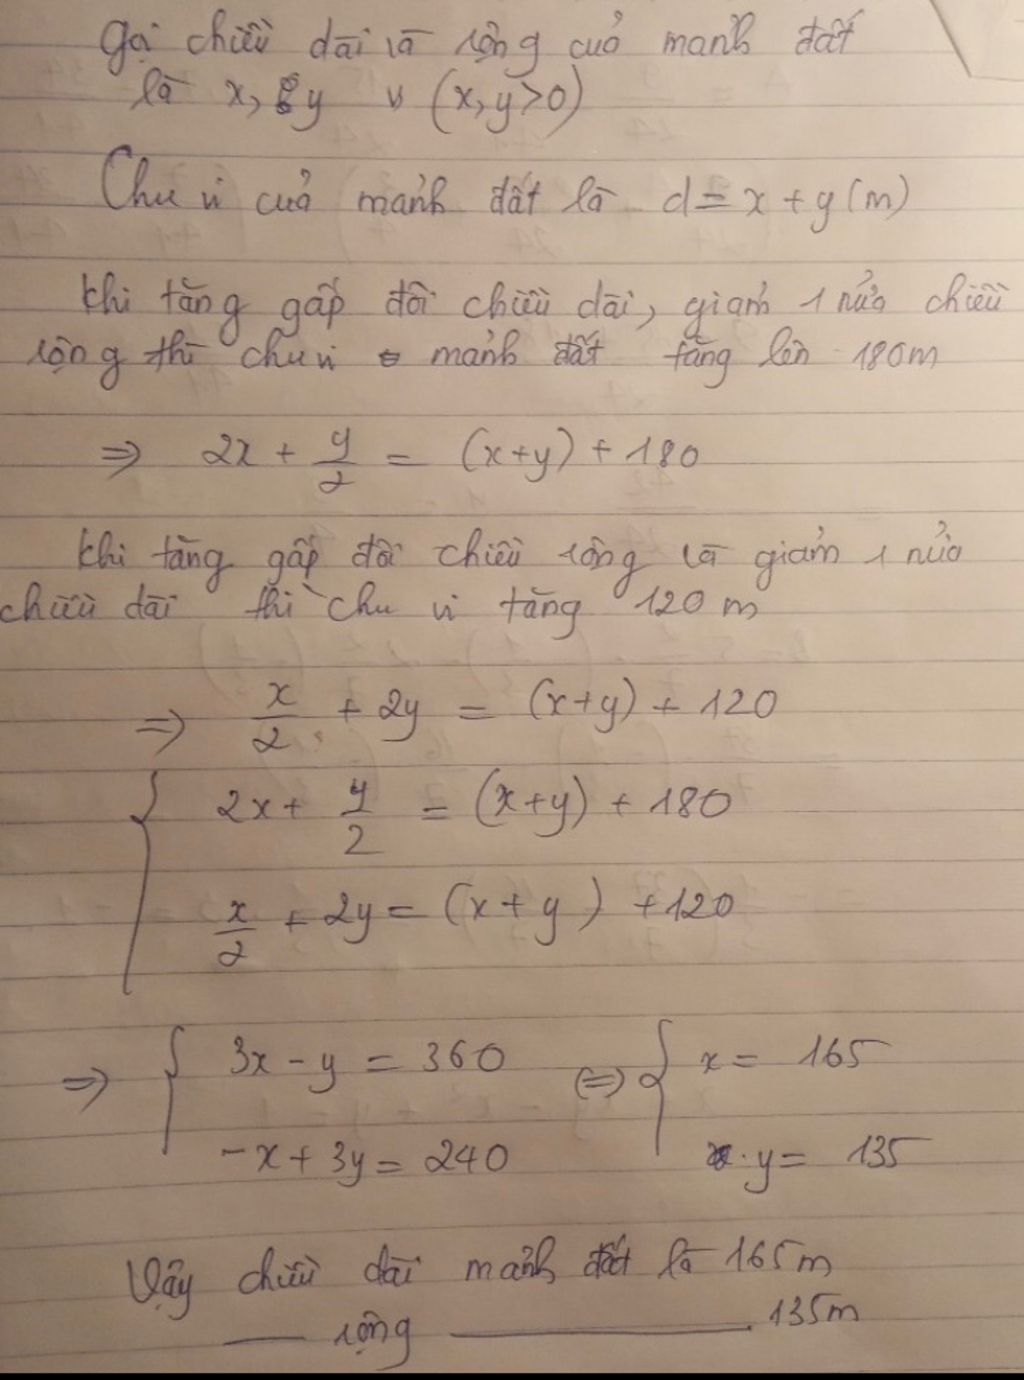 Gọi chiều dài và rộng của mảnh đất
là x, y (x, y>0)
Chu vi của mảnh đất là d = x + y (m)
Khi tăng gấp đôi chiều dài, giảm 1 nửa chiều
rộng thì chu vi mảnh đất tăng lên 180m
=> 2x + y/2 = (x+y) + 180
Khi tăng gấp đôi chiều rộng và giảm 1 nửa
chiều dài thì chu vi tăng 120 m
=> x/2 + 2y = (x+y) + 120
{ 2x + y/2 = (x+y) + 180
x/2 + 2y = (x+y) + 120
=> { 3x - y = 360 <=> { x = 165
-x + 3y = 240 y = 135
Vậy chiều dài mảnh đất là 165m
— rộng — 135m